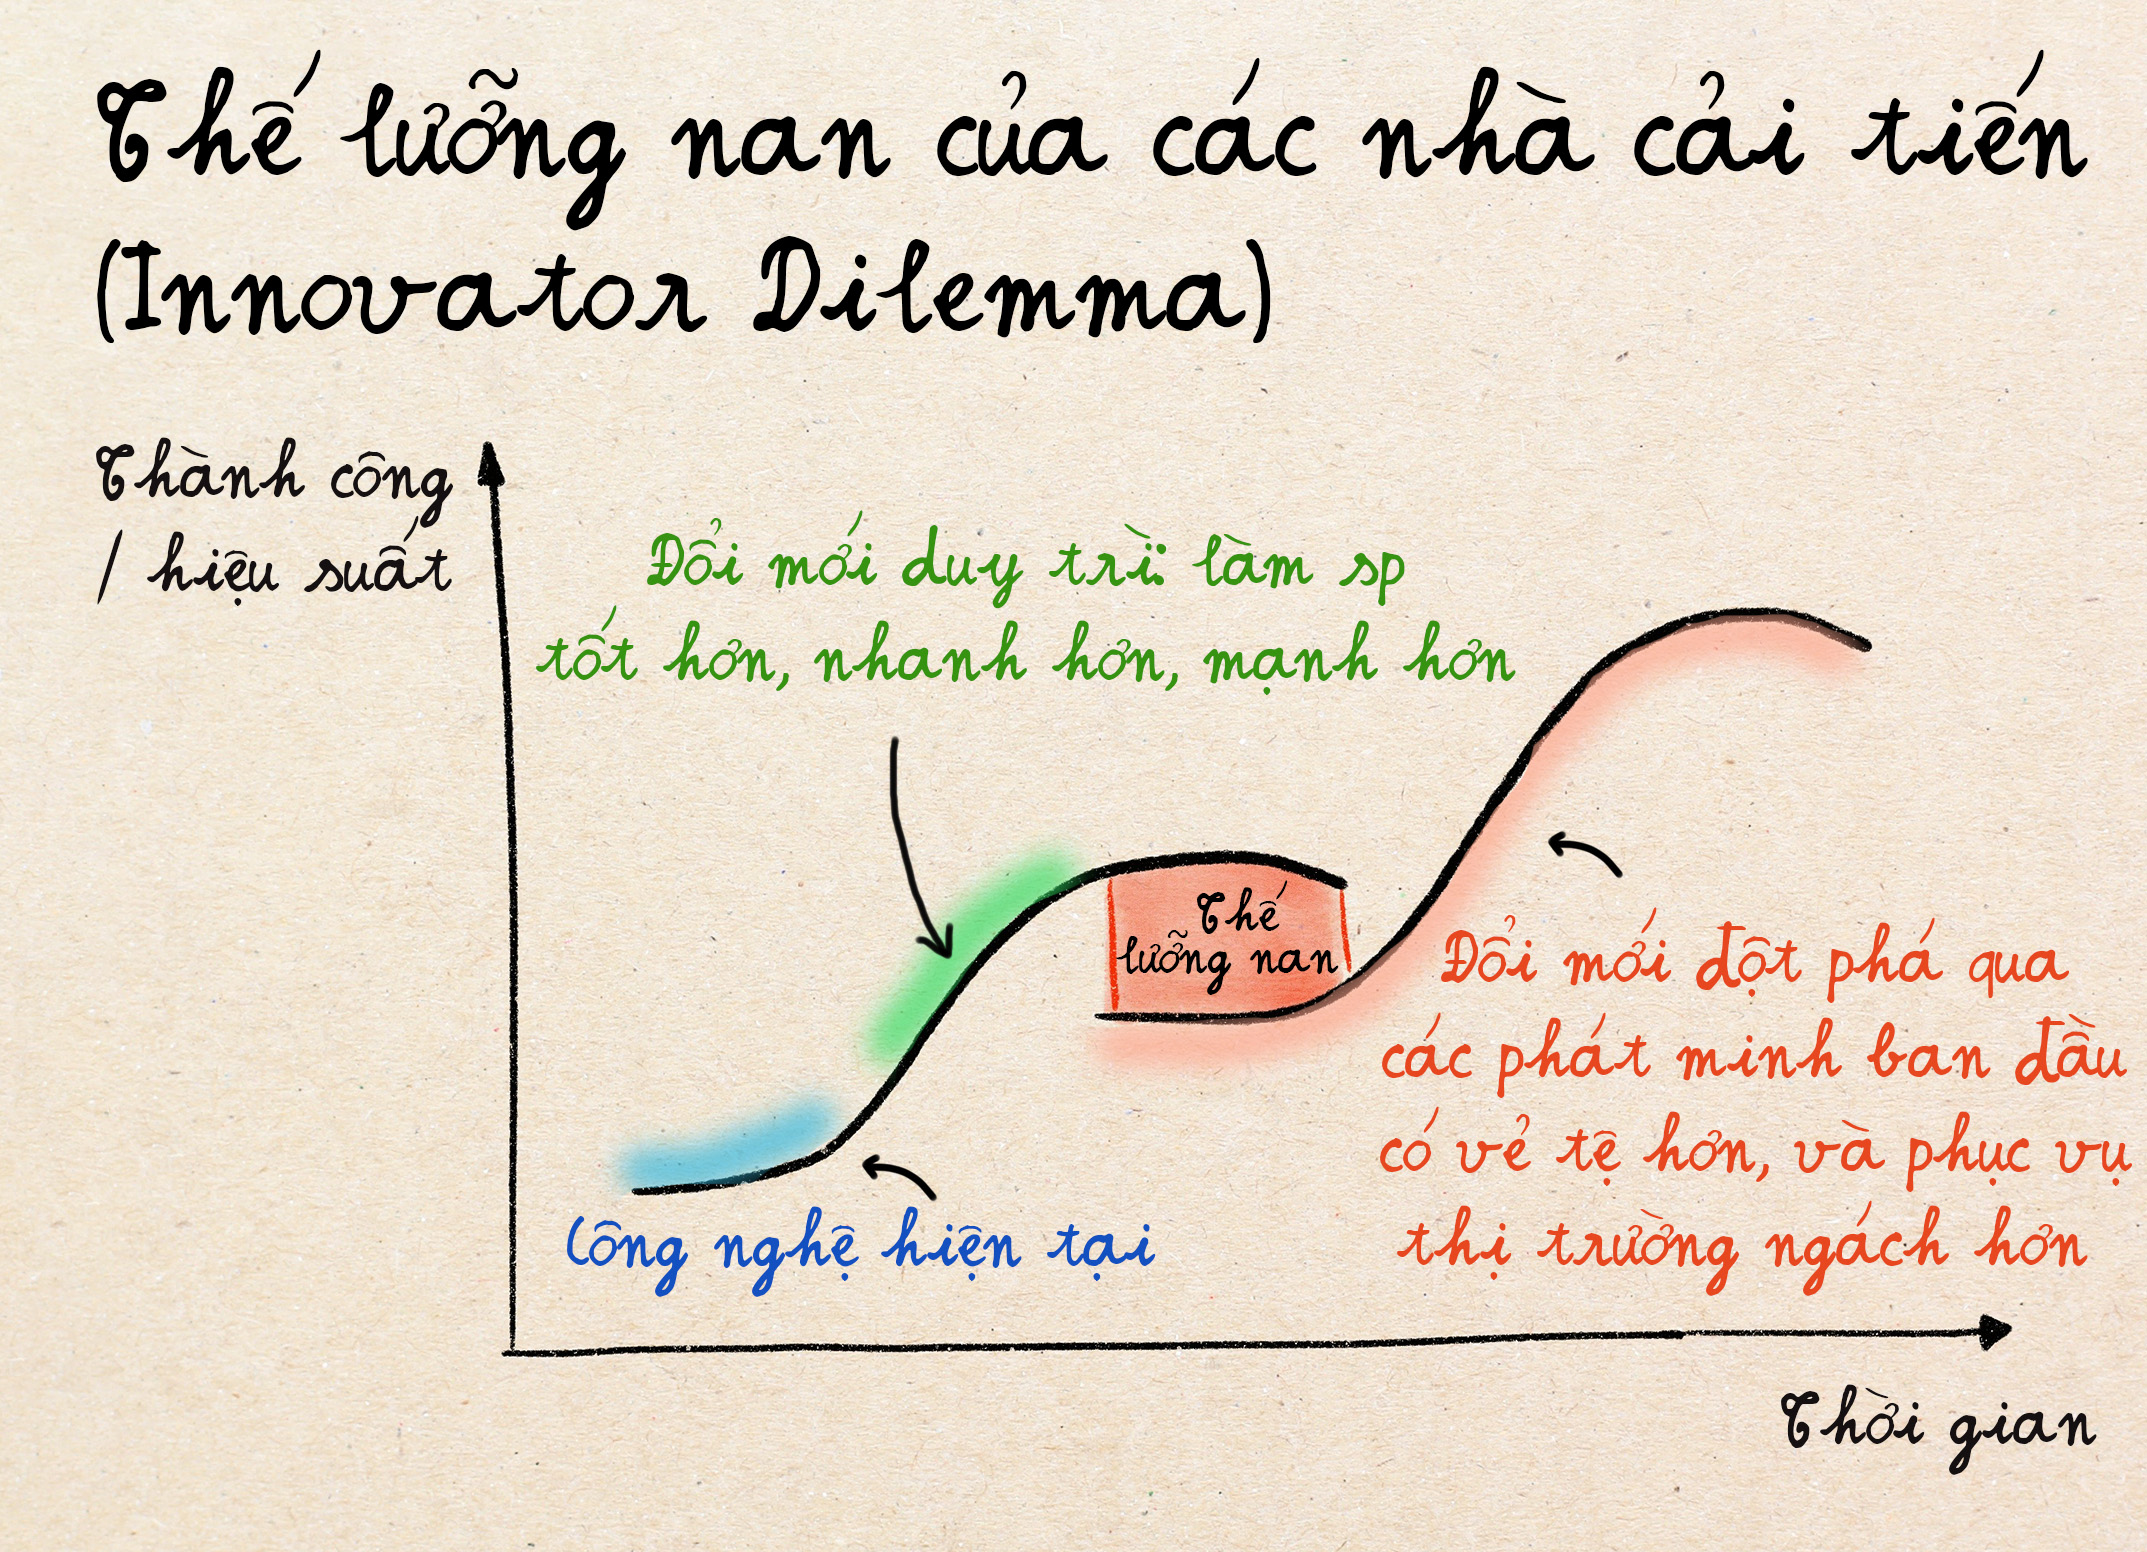 Thế lưỡng nan của các nhà cải tiến
(Innovator Dilemma)
Thành công
/ hiệu suất
Đổi mới duy trì: làm sp
tốt hơn, nhanh hơn, mạnh hơn
Thế
lưỡng nan
Đổi mới đột phá qua
các phát minh ban đầu
có vẻ tệ hơn, và phục vụ
thị trường ngách hơn
Công nghệ hiện tại
Thời gian